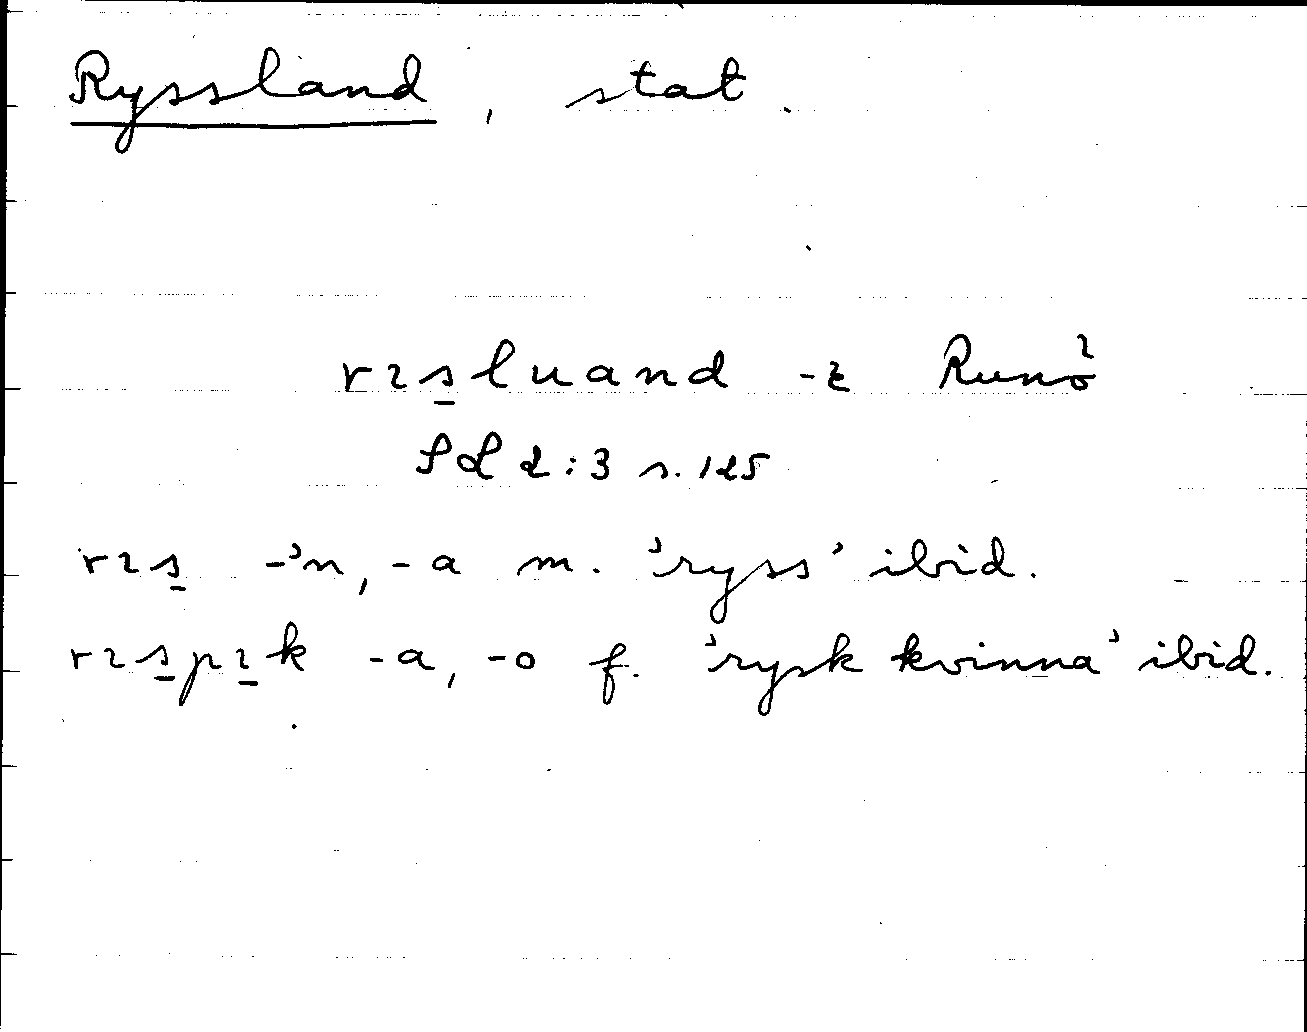 Ryssland, stat.
rıs̲luand -ε Runö
SL 2:3 s. 125
rıs̲ -'n, -a m. 'ryss' ibid.
rıs̲pı̲k -a, -o f. 'rysk kvinna' ibid.